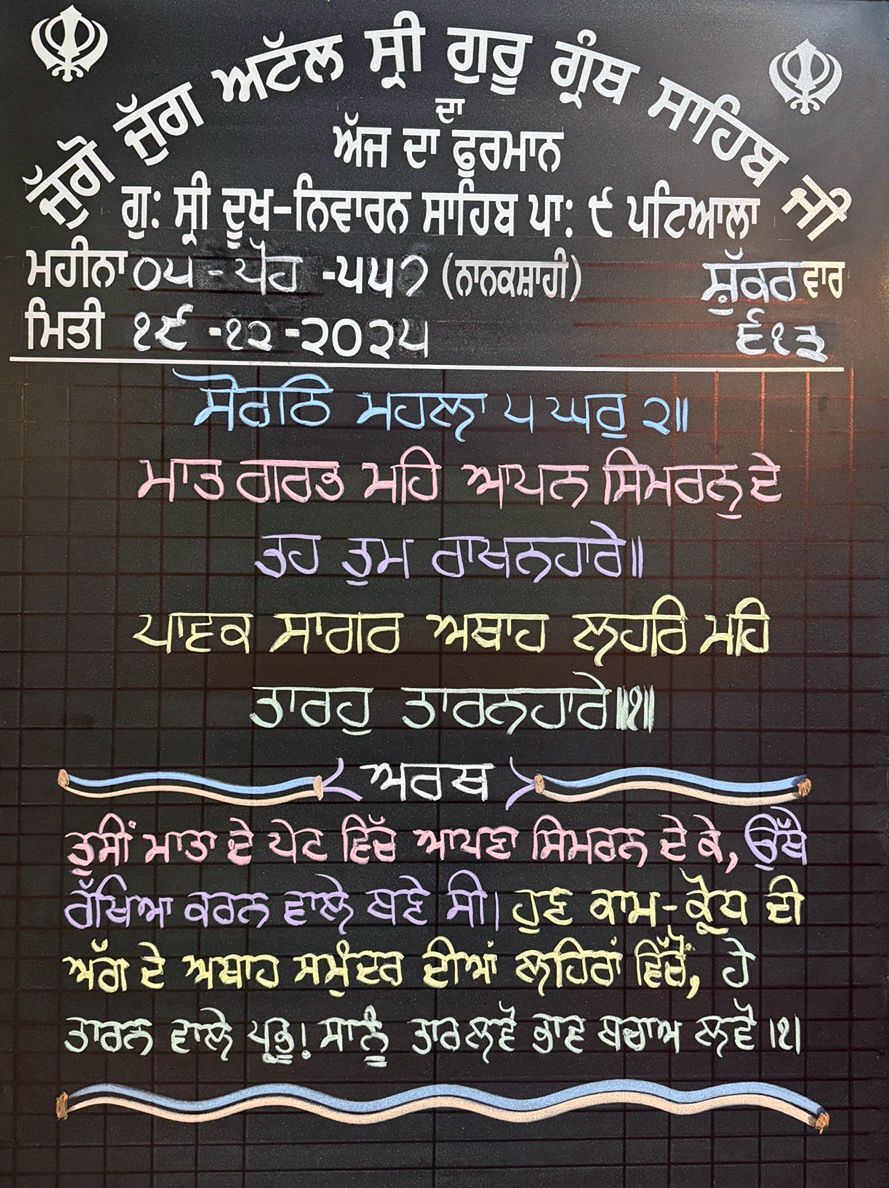 ਜੁੱਗੋ ਜੁੱਗ ਅਟੱਲ ਸ੍ਰੀ ਗੁਰੂ ਗ੍ਰੰਥ ਸਾਹਿਬ ਜੀ
ਦਾ
ਅੱਜ ਦਾ ਫੁਰਮਾਨ
ਗੁ: ਸ੍ਰੀ ਦੂਖ-ਨਿਵਾਰਨ ਸਾਹਿਬ ਪਾ: ੯ ਪਟਿਆਲਾ
ਮਹੀਨਾ ੦੫ - ਪੋਹ -੫੫੭ (ਨਾਨਕਸ਼ਾਹੀ) ਸ਼ੁੱਕਰਵਾਰ
ਮਿਤੀ ੧੯ -੧੨ -੨੦੨੫ ੬੧੩
ਸੋਰਠਿ ਮਹਲਾ ੫ ਘਰੁ ੨॥
ਮਾਤ ਗਰਭ ਮਹਿ ਆਪਨ ਸਿਮਰਨੁ ਦੇ
ਤਹ ਤੁਮ ਰਾਖਨਹਾਰੇ॥
ਪਾਵਕ ਸਾਗਰ ਅਥਾਹ ਲਹਰਿ ਮਹਿ
ਤਾਰਹੁ ਤਾਰਨਹਾਰੇ॥੧॥
ਅਰਥ
ਤੁਸੀਂ ਮਾਤਾ ਦੇ ਪੇਟ ਵਿੱਚ ਆਪਣਾ ਸਿਮਰਨ ਦੇ ਕੇ, ਉੱਥੇ
ਰੱਖਿਆ ਕਰਨ ਵਾਲੇ ਬਣੇ ਸੀ। ਹੁਣ ਕਾਮ-ਕ੍ਰੋਧ ਦੀ
ਅੱਗ ਦੇ ਅਥਾਹ ਸਮੁੰਦਰ ਦੀਆਂ ਲਹਿਰਾਂ ਵਿੱਚੋਂ, ਹੇ
ਤਾਰਨ ਵਾਲੇ ਪ੍ਰਭੂ! ਸਾਨੂੰ ਤਾਰ ਲਵੋ ਭਾਵ ਬਚਾਅ ਲਵੋ।੧।